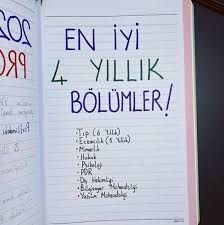 EN İYİ
4 YILLIK
BÖLÜMLER!
• Tıp (6 Yıllık)
• Eczacılık (5 Yıllık)
• Mimarlık
• Hukuk
• Psikoloji
• PDR
• Diş Hekimliği
• Bilgisayar Mühendisliği
• Yazılım Mühendisliği